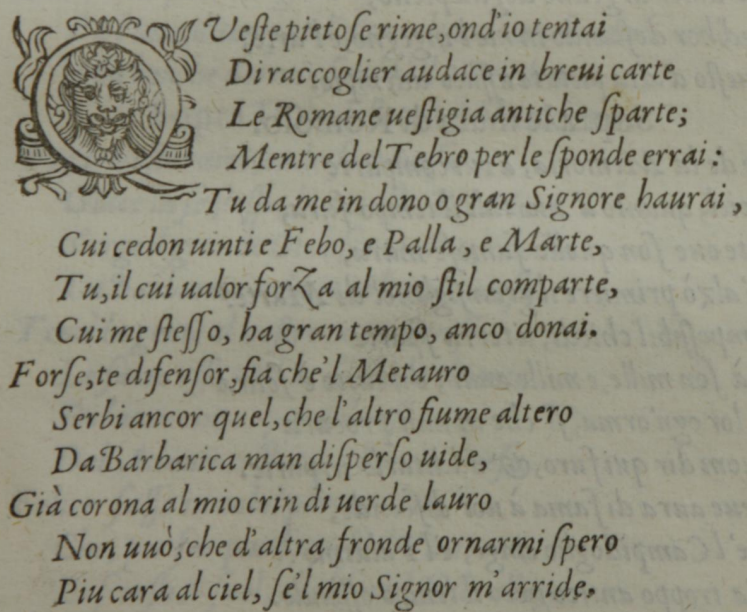 QVeste pietose rime, ond'io tentai
Di raccoglier audace in breui carte
Le Romane uestigia antiche sparte;
Mentre del Tebro per le sponde errai:
Tu da me in dono o gran Signore haurai,
Cui cedon uinti e Febo, e Palla, e Marte,
Tu, il cui ualor forza al mio stil comparte,
Cui me stesso, ha gran tempo, anco donai.
Forse, te difensor, fia che'l Metauro
Serbi ancor quel, che l'altro fiume altero
Da Barbarica man disperso uide,
Già corona al mio crin di uerde lauro
Non uuò, che d'altra fronde ornarmi spero
Piu cara al ciel, se'l mio Signor m'arride.